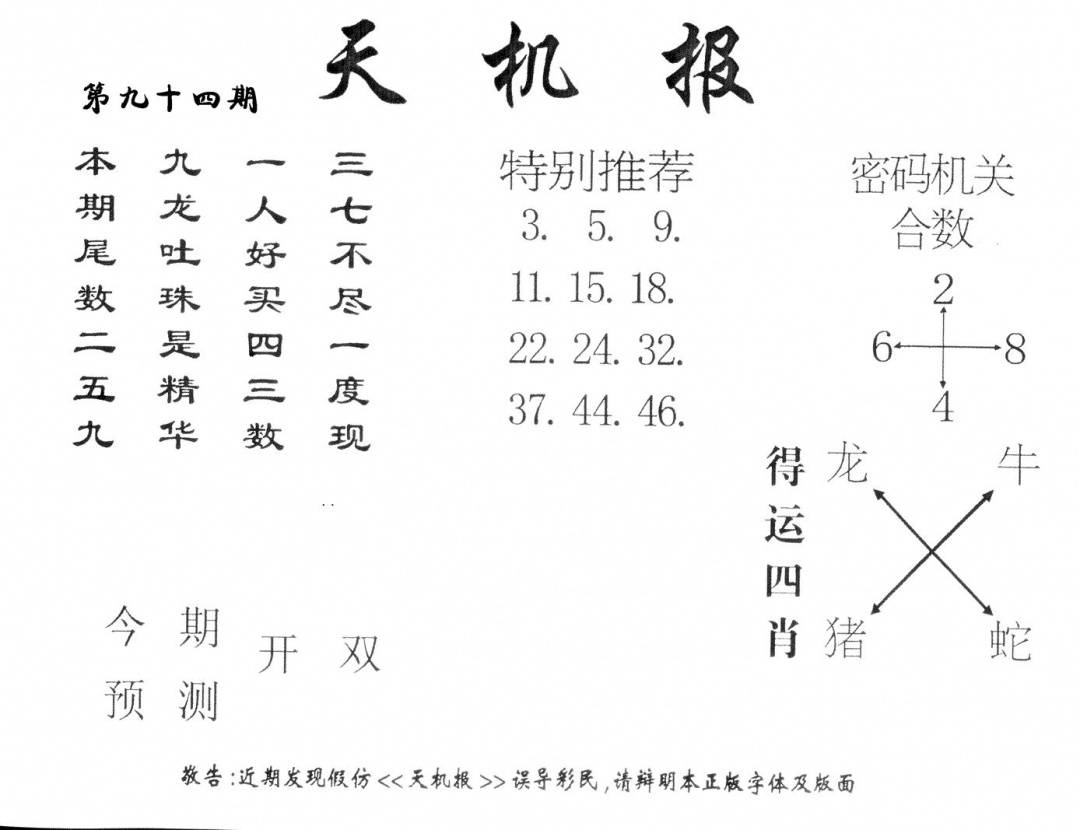 天机报
第九十四期
三七不尽一度现
一人好买四三数
九龙吐珠是精华
本期尾数二五九
特别推荐
3. 5. 9.
11. 15. 18.
22. 24. 32.
37. 44. 46.
密码机关
合数
2
6 8
4
得运四肖
龙 牛
猪 蛇
今期
预测
开双
敬告:近期发现假仿<<天机报>>误导彩民,请辩明本正版字体及版面